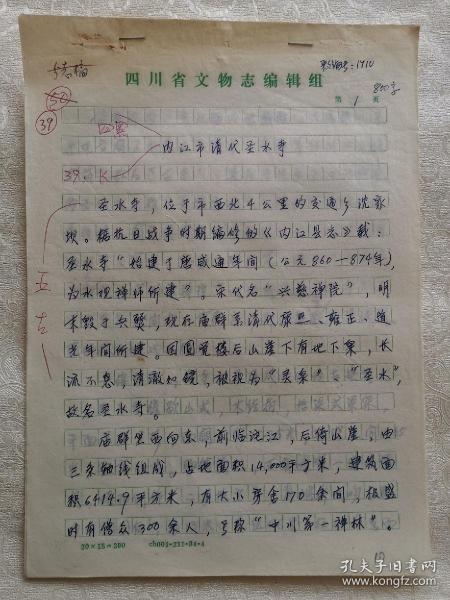 四川省文物志编辑组
第 1 页
800字
50
39
四 
内江市清代圣水寺
39. K
圣水寺，位于市西北4公里的交通乡沈家
坝。据抗日战争时期编修的《内江县志》载：
圣水寺“始建于唐咸通年间（公元860—874年），
为水观禅师所建”。宋代名“兴慈禅院”，明
末毁于兵燹，现存庙群系清代康熙、雍正、道
光年间所建。因圆觉楼后山崖下有地下泉，长
流不息，清澈如镜，被视为“灵泉”、“圣水”，
故名圣水寺。
庙群坐西向东，前临沱江，后倚山崖，由
三条轴线组成，占地面积14,000平方米，建筑面
积6414.9平方米，有大小房舍170余间，极盛
时有僧众300余人，号称“十川第一禅林”。
20×15=300
孔夫子旧书网